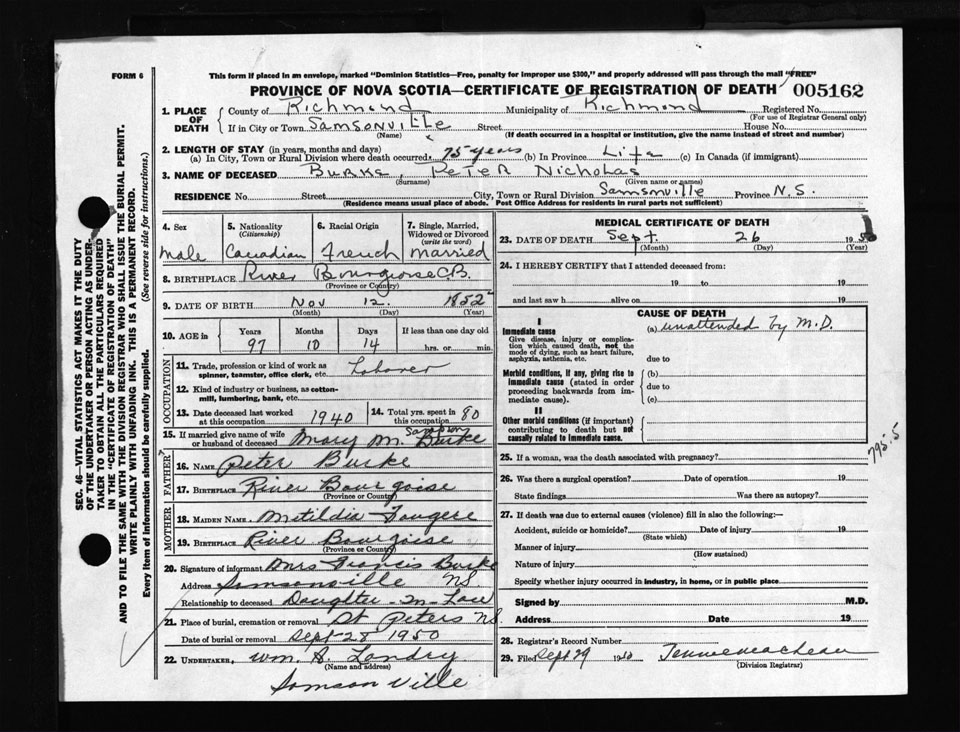 FORM 6
This form if placed in an envelope, marked "Dominion Statistics—Free, penalty for improper use $300," and properly addressed will pass through the mail "FREE"
PROVINCE OF NOVA SCOTIA—CERTIFICATE OF REGISTRATION OF DEATH 005162
1. PLACE OF DEATH
County of Richmond Municipality of Richmond Registered No.
(For use of Registrar General only)
If in City or Town Samsonville Street House No.
(Name) (If death occurred in a hospital or institution, give the name instead of street and number)
2. LENGTH OF STAY (in years, months and days)
(a) In City, Town or Rural Division where death occurred 75 years (b) In Province Life (c) In Canada (if immigrant)
3. NAME OF DECEASED Burke, Peter Nicholas
(Surname) (Given name or names)
RESIDENCE No. Street City, Town or Rural Division Samsonville Province N.S.
(Residence means usual place of abode. Post Office Address for residents in rural parts not sufficient)
4. Sex
male
5. Nationality
(Citizenship)
Canadian
6. Racial Origin
French
7. Single, Married, Widowed or Divorced
(write the word)
married
8. BIRTHPLACE River Bourgeoise C.B.
(Province or Country)
9. DATE OF BIRTH Nov 12 1852
(Month) (Day) (Year)
10. AGE in
Years Months Days If less than one day old
97 10 14 hrs. or min.
OCCUPATION
11. Trade, profession or kind of work as spinner, teamster, office clerk, etc. Laborer
12. Kind of industry or business, as cotton-mill, lumbering, bank, etc.
13. Date deceased last worked at this occupation 1940
14. Total yrs. spent in this occupation 80
15. If married give name of wife or husband of deceased Mary M. Sampson Burke
FATHER
16. NAME Peter Burke
17. BIRTHPLACE River Bourgoise
(Province or Country)
MOTHER
18. MAIDEN NAME Matildia Fougere
19. BIRTHPLACE River Bourgoise
(Province or Country)
20. Signature of informant Mrs Francis Burke
Address Samsonville NS.
Relationship to deceased Daughter-in-Law
21. Place of burial, cremation or removal St Peters N.S.
Date of burial or removal Sept 28 1950
22. UNDERTAKER, Wm. A. Landry
(Name and address)
Samson Ville
MEDICAL CERTIFICATE OF DEATH
23. DATE OF DEATH Sept. 26 1950
(Month) (Day) (Year)
24. I HEREBY CERTIFY that I attended deceased from:
19 to 19
and last saw h alive on 19
CAUSE OF DEATH
I
Immediate cause (a) unattended by M.D.
Give disease, injury or complication which caused death, not the mode of dying, such as heart failure, asphyxia, asthenia, etc.
due to
Morbid conditions, if any, giving rise to immediate cause (stated in order proceeding backwards from immediate cause).
(b)
due to
(c)
II
Other morbid conditions (if important) contributing to death but not causally related to immediate cause.
795.5
25. If a woman, was the death associated with pregnancy?
26. Was there a surgical operation? Date of operation 19
State findings Was there an autopsy?
27. If death was due to external causes (violence) fill in also the following:—
Accident, suicide or homicide? Date of injury 19
(State which)
Manner of injury
(How sustained)
Nature of injury
Specify whether injury occurred in industry, in home, or in public place
Signed by M.D.
Address Date 19
28. Registrar's Record Number
29. Filed Sept 29 1950
(Division Registrar)
SEC. 46—VITAL STATISTICS ACT MAKES IT THE DUTY
OF THE UNDERTAKER OR PERSON ACTING AS UNDER-
TAKER TO OBTAIN ALL THE PARTICULARS REQUIRED
IN THE "CERTIFICATE OF REGISTRATION OF DEATH"
AND TO FILE THE SAME WITH THE DIVISION REGISTRAR WHO SHALL ISSUE THE BURIAL PERMIT.
WRITE PLAINLY WITH UNFADING INK. THIS IS A PERMANENT RECORD.
Every item of information should be carefully supplied. (See reverse side for instructions.)